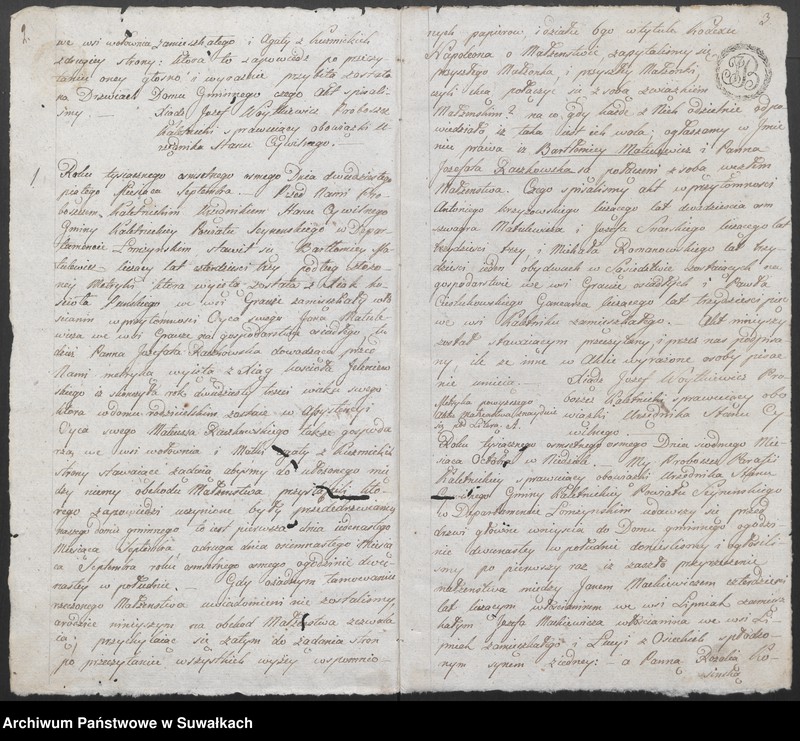 2.
we wsi wołownia zamieszkałego i Agaty z Kuśmickich
z drugiey strony: która to zapowiedź po przeczy-
taniu oney głośno i wyraźnie przybita została
na Drzwiach Domu Gminnego czego Akt spisali-
śmy. — Xiądz Jozef Woytkiewicz Proboszcz
Kaletnicki sprawuiący obowiązki U-
rzędnika Stanu Cywilnego. —
1 Roku tysiącznego osmsetnego osmego Dnia dwudziestego
piątego Miesiąca Septembra. — Przed Nami Pro-
boszczem Kaletnickim Urzędnikiem Stanu Cywilnego
Gminy Kaletnickiey Powiatu Seyneńskiego w Depar-
tamencie Łomżyńskim stawił się Bartłomiey Ma-
tulewicz liczący lat czterdzieści trzy podług złożo-
ney Metryki która wyięta została z Xiąk ko-
ścioła Puńskiego we wsi Grauże zamieszkały wło-
ścianin w przytomności Oyca swego Jana Matule-
wicza we wsi Grauże na gospodarstwie osiadłego tu-
dzież Panna Jozefata Raczkowska dowodząca przed
Nami metryką wyiętą z Xiąg kościoła Jeleniew-
skiego iż skończyła rok dwudziesty trzeci wieku swego
która w domu rodzicielskim zostaie w Assystencyi
Oyca swego Mateusza Raczkowskiego także gospoda-
rza we wsi wołownia i Matki Agaty z Kuśmickich
strony stawaiące żądaią abyśmy do ułożonego mię-
dzy niemy obchodu Małżeństwa przystąpili któ-
rego zapowiedzi uczynione były przed drzwiami
naszego domu gminnego to iest pierwsza dnia iedenastego
Miesiąca Septembra, a druga dnia osiemnastego Miesią-
ca Septembra roku osmsetnego osmego ogodzinie dwu-
nastey w południe. — Gdy o żadnym tamowaniu
rzeczonego Małżeństwa uwiadomieni nie zostaliśmy,
a rodzice niniejszym na obchod Małżeństwa zezwala-
ią; przychylaiąc się zatym do żądania stron
po przeczytaniu wszystkich wyżey wspomnio-
3
nych papierow, i działu 6go w tytule Kodexu
Napoleona o Małżeństwie zapytaliśmy się
przyszłego Małżonka i przyszłey Małżonki,
czyli chcą połączyć się z sobą związkiem
Małżeńskim? na co, gdy każde z Nich oddzielnie odpo-
wiedziało iż taka iest ich wola; ogłaszamy w Imie-
niu prawa iż Bartłomiey Matulewicz i Panna
Jozefata Raczkowska są połączeni z sobą węzłem
Małżeństwa. Czego spisaliśmy akt w przytomności
Antoniego Krzyżowskiego liczącego lat dwadzieścia osm
szwagra Matulewicza i Jozefa Snarskiego liczącego lat
trzydzieści trzy, i Michała Romanowskiego lat trzy-
dzieści iedm obydwuch w Sąsiedztwie zostaiących na
gospodarstwie we wsi Grauże osiadłych i Pawła
Cieślukowskiego Garncarza liczącego lat trzydzieści pięć
we wsi Kaletniku zamieszkałego. — Akt niniejszy
został stawaiącym przeczytany, i przez nas podpisa-
ny, ile że inne w Akcie wyrażone osoby pisać
nie umieią. — Xiądz Jozef Woytkiewicz Pro-
boszcz Kaletnicki sprawuiący obo-
wiązki Urzędnika Stanu Cy-
wilnego.
Metryka powyższego
aktu małżeństwa znayduie
się pod Literą A.
Roku tysiącznego osmsetnego osmego Dnia siódmego Mie-
siąca Octobra w Niedzielę. — My Proboszcz Parafii
Kaletnickiey sprawuiący obowiązki Urzędnika Stanu
Cywilnego Gminy Kaletnickiey Powiatu Seyneńskiego
w Departamencie Łomżyńskim udawszy się przed
drzwi główne weyścia do Domu gminnego ogodzi-
nie dwunastey w południe donieśliśmy i ogłosili-
śmy po pierwszy raz iż zaszło przyrzeczenie
małżeństwa między Janem Mackiewiczem czterdzieści
lat liczącym włościaninem we wsi Lipniak zamiesz-
kałym Jozefa Mackiewicza włościanina we wsi Li-
pniak zamieszkałego i Łucyi z Osieckich spłodzo-
nym synem z iedney: — a Panną Rozalią Ko-
sińską
Archiwum Państwowe w Suwałkach